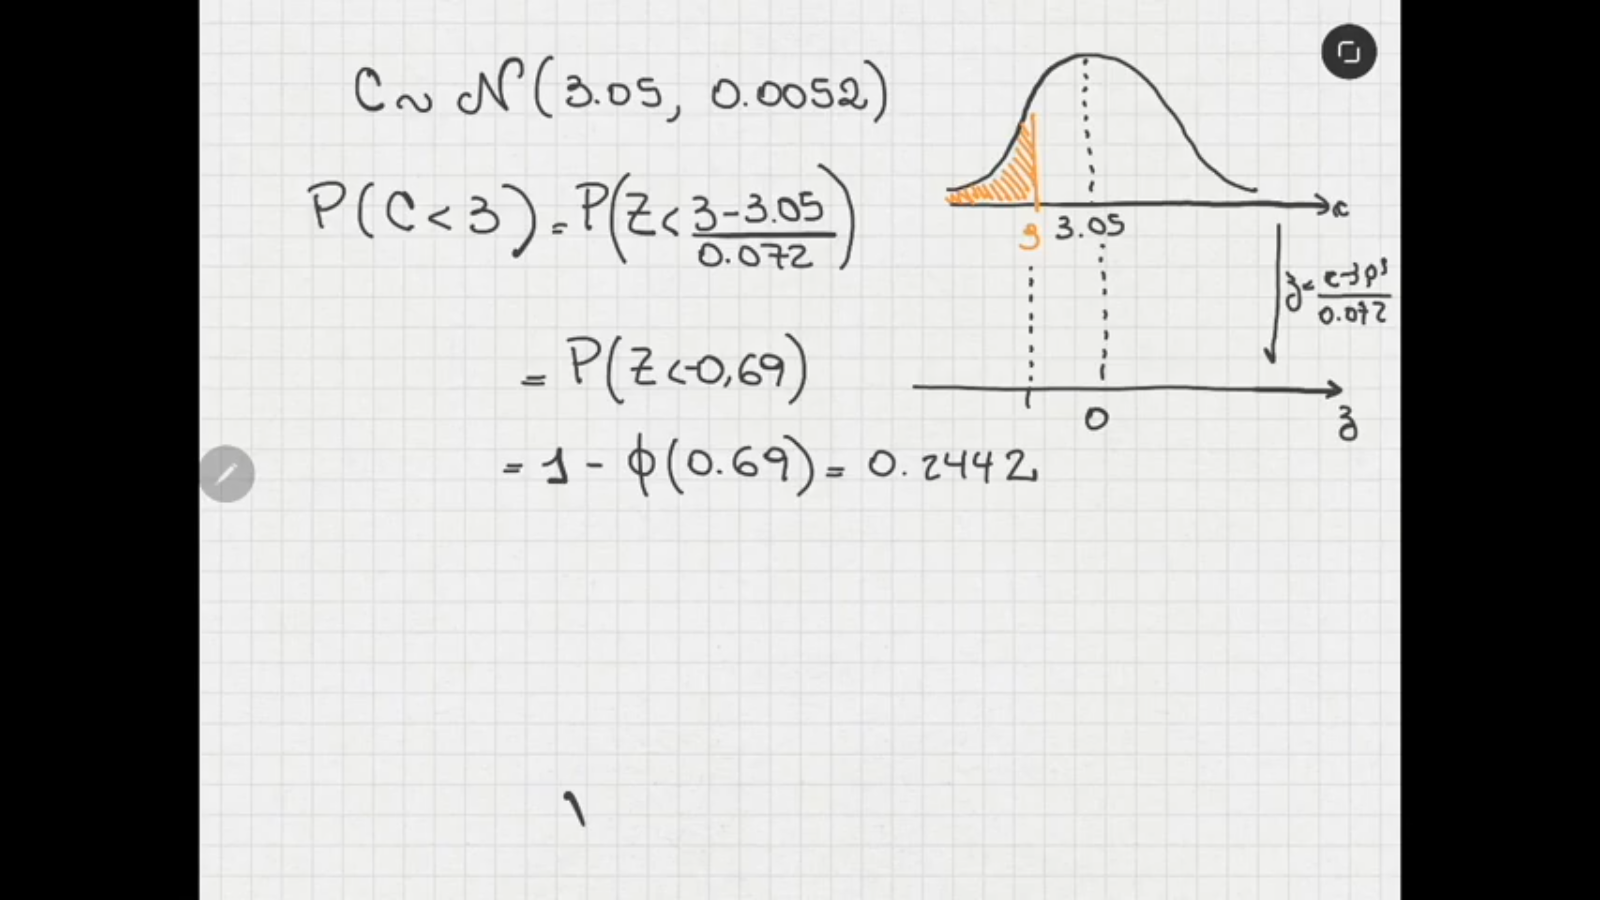 C ~ N(3.05, 0.0052)
P(C < 3) = P(Z < 3-3.05 / 0.072)
= P(Z <-0,69)
= 1 - ϕ(0.69) = 0.2442
c
3 3.05
0.072
0
z